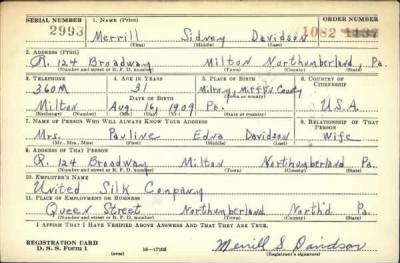 SERIAL NUMBER 1. NAME (Print) ORDER NUMBER
2993 Merrill Sidney Davidson 1082 1137
(First) (Middle) (Last)
2. ADDRESS (Print)
R. 124 Broadway Milton Northumberland Pa.
(Number and street or R. F. D. number) (Town) (County) (State)
3. TELEPHONE 4. AGE IN YEARS 5. PLACE OF BIRTH 6. COUNTRY OF CITIZENSHIP
360M 31 Milroy, Mifflin County
DATE OF BIRTH
Milton Aug. 16, 1909 Pa. U.S.A.
(Exchange) (Number) (Mo.) (Day) (Yr.) (State or country)
7. NAME OF PERSON WHO WILL ALWAYS KNOW YOUR ADDRESS 8. RELATIONSHIP OF THAT PERSON
Mrs. Pauline Edna Davidson Wife
(Mr., Mrs., Miss) (First) (Middle) (Last)
9. ADDRESS OF THAT PERSON
R. 124 Broadway Milton Northumberland Pa.
(Number and street or R. F. D. number) (Town) (County) (State)
10. EMPLOYER'S NAME
United Silk Company
11. PLACE OF EMPLOYMENT OR BUSINESS
Queen Street Northumberland North'd. Pa.
(Number and street or R. F. D. number) (Town) (County) (State)
I AFFIRM THAT I HAVE VERIFIED ABOVE ANSWERS AND THAT THEY ARE TRUE.
REGISTRATION CARD
D. S. S. Form 1 (over) 16—17105 Merrill S Davidson
(Registrant's signature)